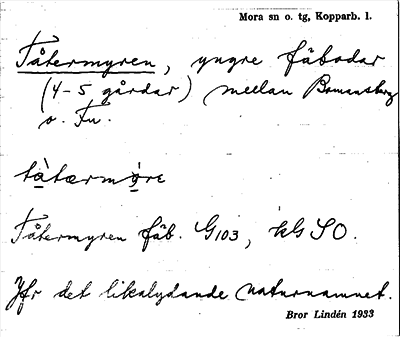 Mora sn o. tg, Kopparb. l.
Tåtermyren, yngre fäbodar
(4-5 gårdar) mellan Bomansberg
o. Fu.
tàtærmỳre
Tåtermyren fäb. G103, kbl SO.
Jfr det likalydande naturnamnet.
Bror Lindén 1933